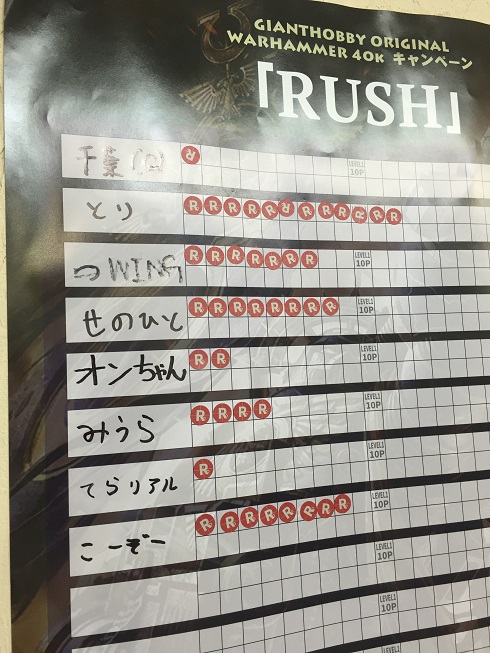 GIANTHOBBY ORIGINAL
WARHAMMER 40K キャンペーン
「RUSH」
千葉 R LEVEL1 10P
とり R R R R R R R R R R R
WING R R R R R R R LEVEL1 10P
せのひと R R R R R R R R LEVEL1 10P
オンちゃん R R LEVEL1 10P
みうら R R R R LEVEL1 10P
てらリアル R LEVEL1 10P
こーぞー R R R R R R R R LEVEL1 10P
LEVEL1 10P
LEVEL1 10P